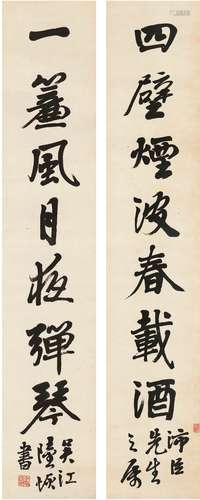 四壁煙波春載酒
沛臣
先生
之屬
一簾風月夜彈琴
吳江
陸恢
書